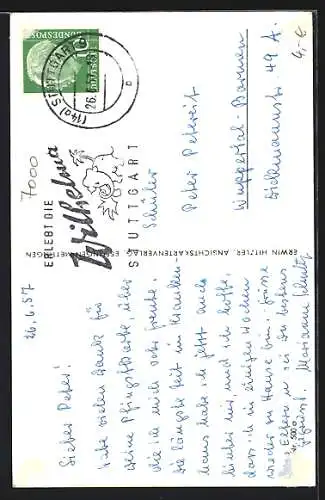 26.6.57
Lieber Peter!
Habe vielen Dank für
deine Pfingstkarte, über
die ich mich sehr freute.
Die längste Zeit im Kranken
haus habe ich jetzt auch
hinter mir, und ich hoffe,
dass ich in einigen Wochen
wieder zu Hause bin. Grüsse
Eltern u. sei du bestens
gegrüsst. Marianne
ERWIN HITZLER, ANSICHTSKARTENVERLAG, ESSLINGEN-METTINGEN
500
7000
ERLEBT DIE
Wilhelma
STUTTGART
(14a) STUTTGART
26.
DEUTSCHE
BUNDESPOST
10
Schüler
Peter Petereit
Wuppertal-Barmen
49 A.
4,-€